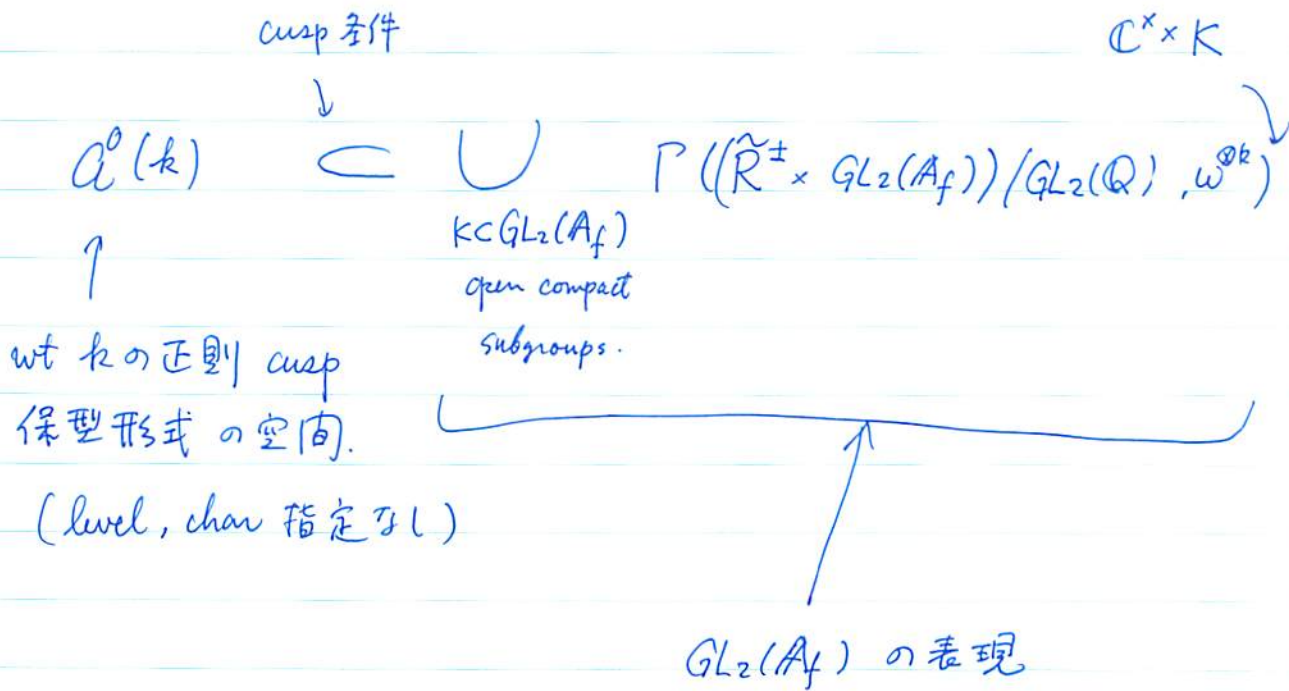 cusp 条件
ℂ^× × K
↓
𝒜⁰(k) ⊂ ∪ Γ((R̃^± × GL₂(𝔸_f))/GL₂(ℚ), ω^{⊗k})
K⊂GL₂(𝔸_f)
open compact
subgroups.
↑
wt k の正則 cusp
保型形式 の空間.
(level, char 指定なし)
GL₂(𝔸_f) の表現